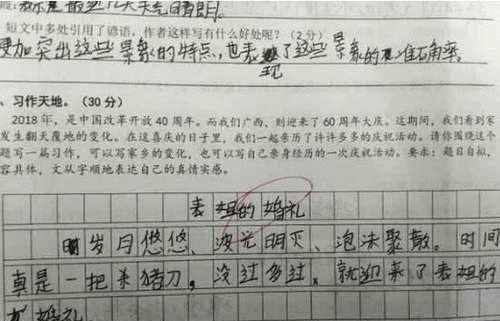 标是最近几天天气晴朗。
短文中多处引用了谚语，作者这样写有什么好处呢？（2分）
更加突出这些景象的特点，也表现了这些景象的准确率。
、习作天地。（30分）
2018年，是中国改革开放40周年。而我们广西，则迎来了60周年大庆。这期间，我们看到家
发生翻天覆地的变化。在这喜庆的日子里，我们一起亲历了许许多多的庆祝活动。请你围绕这个
题写一篇习作，可以写家乡的变化，也可以写自己亲身经历的一次庆祝活动。要求：题目自拟，
容具体，文从字顺地表达自己的真情实感。
表姐的婚礼
岁月悠悠、波光明灭、泡沫聚散。时间
真是一把杀猪刀，没过多过，就迎来了表姐的
婚礼